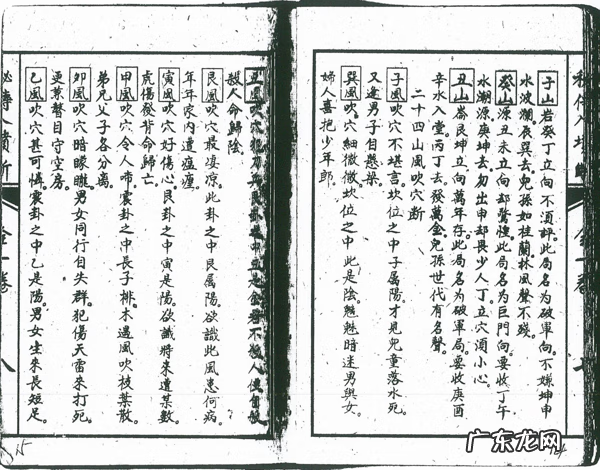 子山若癸丁立向不須評。此局名為破軍向。不嫌坤申
水波瀾辰巽去。兒孫如桂蘭。林風聲不殘。
癸山源丑未立向却驚惶。此局名為巨門向。要收丁午
水潮源庚坤去。勿出申却畏少人丁立穴須小心。
丑山喬艮坤立向萬年存。此局名為破軍局。要收庚酉
辛水入堂丙丁去。發萬金。兒孫世代有名聲。
二十四山風吹穴断
子風吹穴不堪言。坎位之中子属陽。才見兒童落水死。
又逢男子自懸梁。
巽風吹穴細微微。坎位之中此是陰。魑魅暗迷男與女。
婦人喜抱少年郎。
全一卷
丑風吹穴犯刀兵艮卦之中丑是金若不殺人便自
殺人命歸陰
艮風吹穴最凄凉。此卦之中艮属陽。欲識此風患何病。
年年家内遭瘟
寅風吹穴好傷心。艮卦之中寅是陽。欲識將來遭某數。
虎傷發背命歸亡。
甲風吹穴令人啼。震卦之中長子排。木遇風吹枝葉散。
弟兄父子各分离。
卯風吹穴暗矇矓。男女同行自失群。犯傷天雷來打死。
更兼瞽目守空房。
乙風吹穴甚可憐。震卦之中乙是陽。男女生來長短足。
全一卷
八
15
14
广东龙网